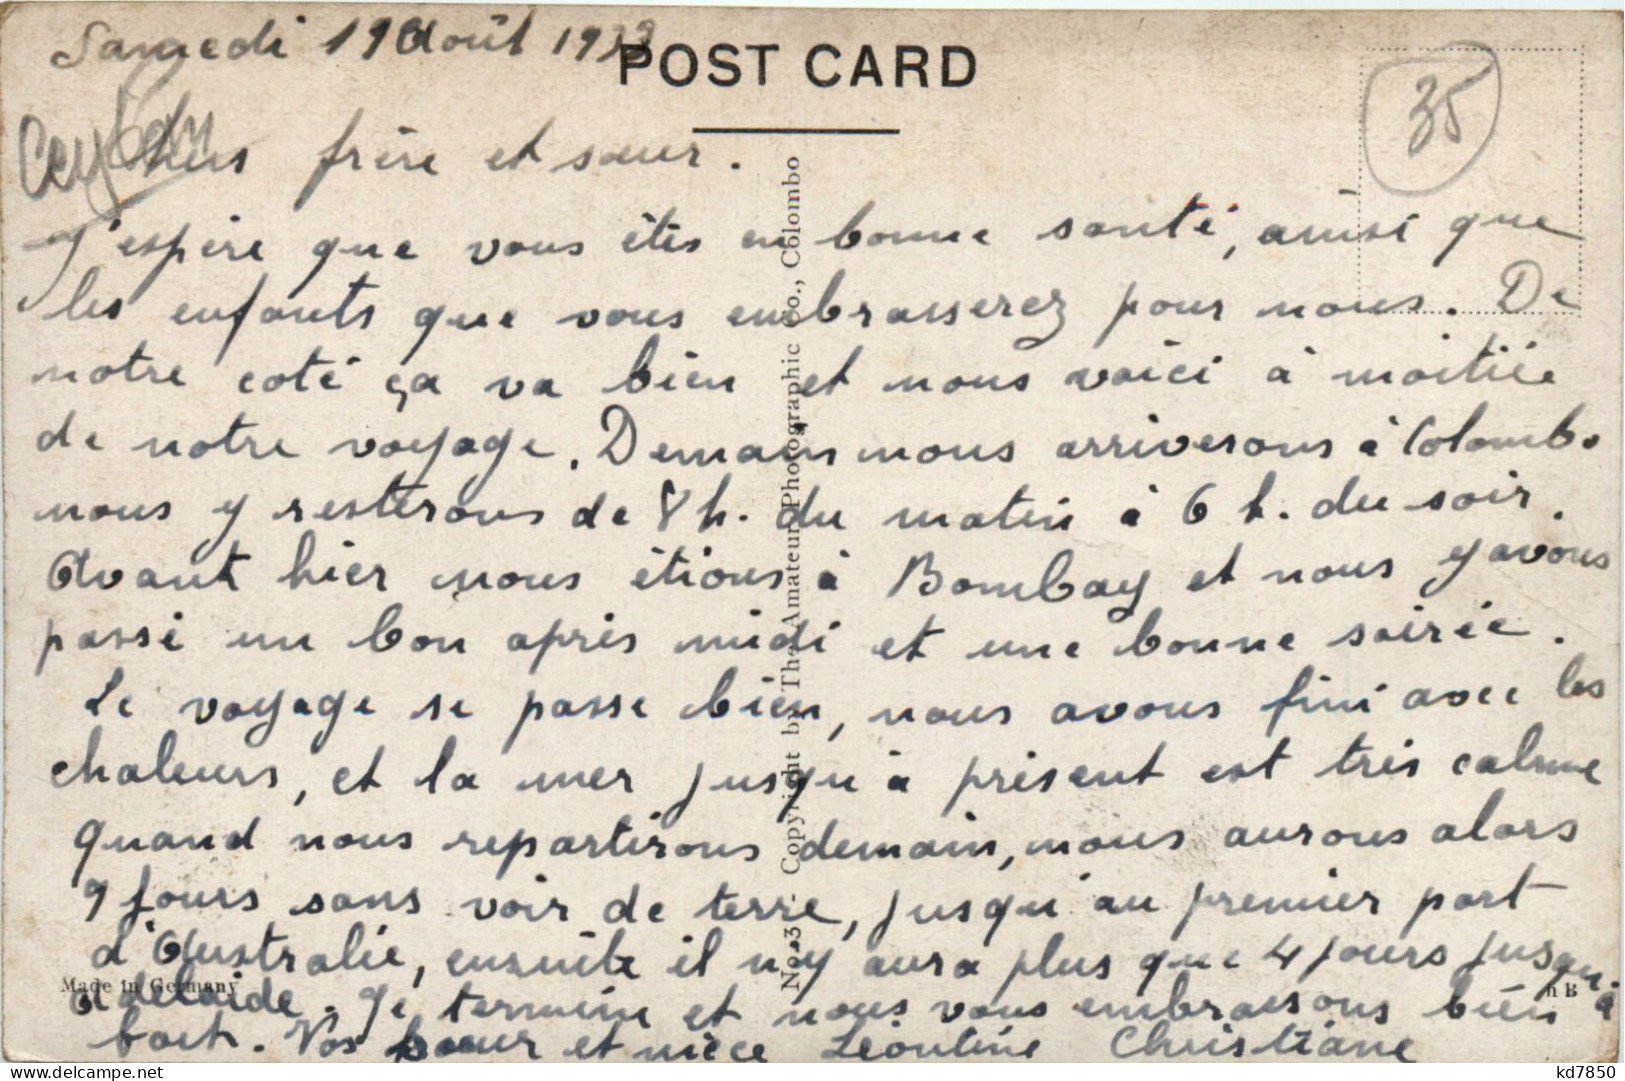 Samedi 19 Août 1933
POST CARD
35
Ceylan
Chers frère et sœur.
J'espère que vous êtes en bonne santé, ainsi que
les enfants que vous embrasserez pour nous. De
notre coté ça va bien et nous voici à moitiée
de notre voyage. Demain nous arriverons à Colombo
nous y resterons de 8 h. du matin à 6 h. du soir.
Avant hier nous étions à Bombay et nous y avons
passé un bon après midi et une bonne soirée.
Le voyage se passe bien, nous avons fini avec les
chaleurs, et la mer jusqu'à présent est très calme
quand nous repartirons demain, nous aurons alors
9 jours sans voir de terre, jusqu'au premier port
d'Australie, ensuite il n'y aura plus que 4 jours jusqu'à
Adelaide. Je termine et nous vous embrassons bien
fort. Vos sœur et nièce Léontine Christiane
No. 3 - Copyright by The Amateur Photographic Co., Colombo
Made in Germany
n B
kd7850